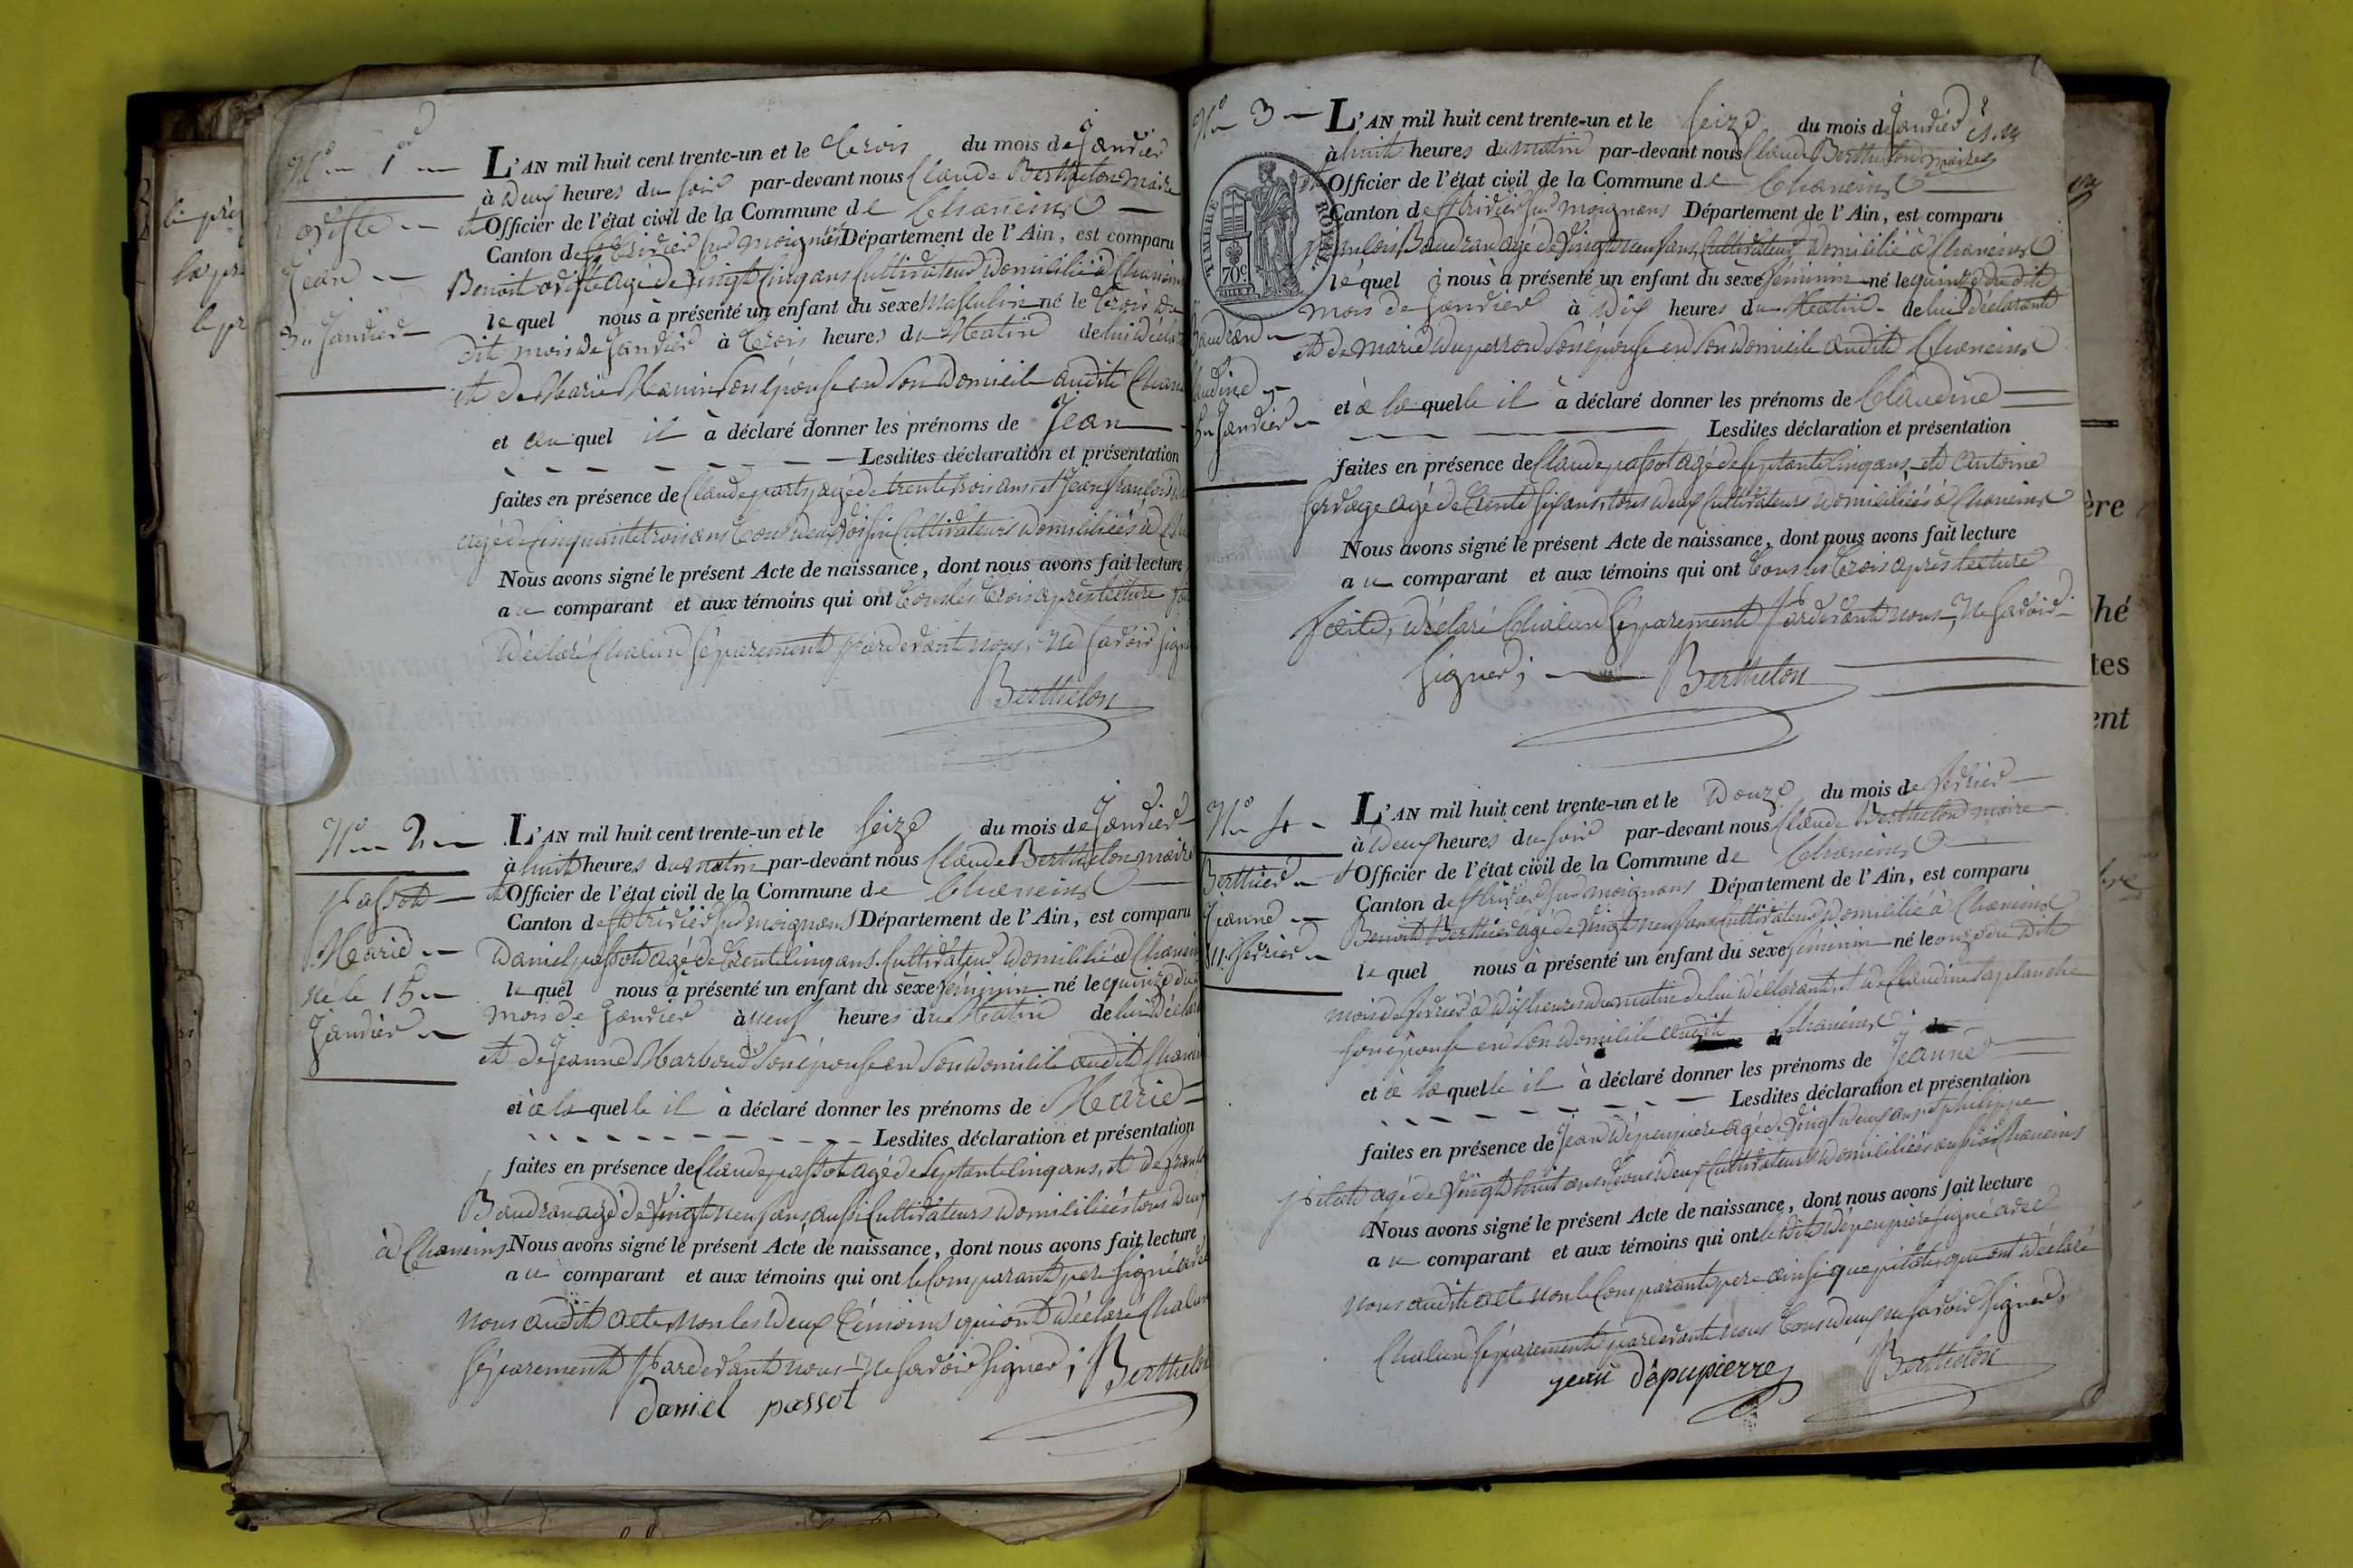 N° 1er
ariste
Jean
3 Janvier
L'AN mil huit cent trente-un et le trois du mois de Janvier
à deux heures du soir par-devant nous Claude Berthelon maire
et Officier de l'état civil de la Commune de Chaneins
Canton de St trivier sur moignans Département de l'Ain, est comparu
Benoit ariste agé de vingt cinq ans cultivateur domicilié à Chaneins
lequel nous à présenté un enfant du sèxe Masculin né le trois du
dit mois de Janvier à trois heures du Matin de lui déclarant
et de Marie Manin son épouse en son domicile audit Chan
et au quel il à déclaré donner les prénoms de Jean
Lesdites déclaration et présentation
faites en présence de Claude agé de trente trois ans et Jean françois
agé de cinquante trois ans tous deux voisin cultivateurs domiciliés à
Nous avons signé le présent Acte de naissance, dont nous avons fait lecture
au comparant et aux témoins qui ont tous les trois après lecture
déclaré chacun séparement pardevant nous, ne savoir signer
Berthelon
N° 2
passot
Marie
né le 15
Janvier
L'AN mil huit cent trente-un et le seize du mois de Janvier
à huit heures du matin par-devant nous Claude Berthelon maire
et Officier de l'état civil de la Commune de Chaneins
Canton de St trivier sur moignans Département de l'Ain, est comparu
Daniel passot agé de trente cinq ans cultivateur domicilié à Chaneins
lequel nous à présenté un enfant du sèxe féminin né le quinze du
mois de Janvier à neuf heures du Matin de lui déclarant
et de Jeanne Marboud son épouse en son domicile audit Chanein
et à la quelle il à déclaré donner les prénoms de Marie
Lesdites déclaration et présentation
faites en présence de Claude passot agé de septante cinq ans, et de franc
Baudran agé de vingt neuf ans, aussi cultivateurs domiciliés tous deux
à Chaneins Nous avons signé le présent Acte de naissance, dont nous avons fait lecture
au comparant et aux témoins qui ont le comparant pere signé avec
nous audit acte non les deux témoins qui ont déclaré chacun
séparement pardevant nous ne savoir signer; Berthelon
daniel passot
N° 3
Baudran
Claudine
Janvier
TIMBRE ROYAL
70c
L'AN mil huit cent trente-un et le seize du mois de Janvier
à huit heures du matin par-devant nous Claude Berthelon maire
et Officier de l'état civil de la Commune de Chaneins
Canton de St trivier sur moignans Département de l'Ain, est comparu
françois Baudran agé de vingt neuf ans, cultivateur domicilié à Chaneins
lequel nous à présenté un enfant du sèxe féminin né le quinze du dit
mois de Janvier à dix heures du Matin de lui déclarant
et de Marie duperron son épouse en son domicile audit Chaneins
et à la quelle il à déclaré donner les prénoms de Claudine
Lesdites déclaration et présentation
faites en présence de Claude passot agé de septante cinq ans, et d'antoine
agé de trente six ans, tous deux cultivateurs domiciliés à Chaneins
Nous avons signé le présent Acte de naissance, dont nous avons fait lecture
au comparant et aux témoins qui ont tous les trois après lecture
faite, déclaré chacun séparement pardevant nous, ne savoir
signer; Berthelon
N° 4
Berthier
Jeanne
11. fevrier
L'AN mil huit cent trente-un et le douze du mois de fevrier
à deux heures du soir par-devant nous Claude Berthelon maire
et Officier de l'état civil de la Commune de Chaneins
Canton de St trivier sur moignans Département de l'Ain, est comparu
Benoit Berthier agé de vingt neuf ans cultivateur domicilié à Chaneins
lequel nous à présenté un enfant du sèxe féminin né le onze du dit
mois de fevrier à dix heures du matin de lui déclarant, et de Claudine laplanche
son épouse en son domicile audit Chaneins
et à la quelle il à déclaré donner les prénoms de Jeanne
Lesdites déclaration et présentation
faites en présence de Jean dépupiere agé de vingt deux ans et philippe
pilat agé de vingt huit ans tous deux cultivateurs domiciliés Chaneins
Nous avons signé le présent Acte de naissance, dont nous avons fait lecture
au comparant et aux témoins qui ont ledit dépupiere signé avec
nous audit acte non le comparant pere ainsi que pilat, qui ont déclaré
chacun séparement pardevant nous tous deux ne savoir signer.
jean dépupierre Berthelon
ère
hé
tes
ent